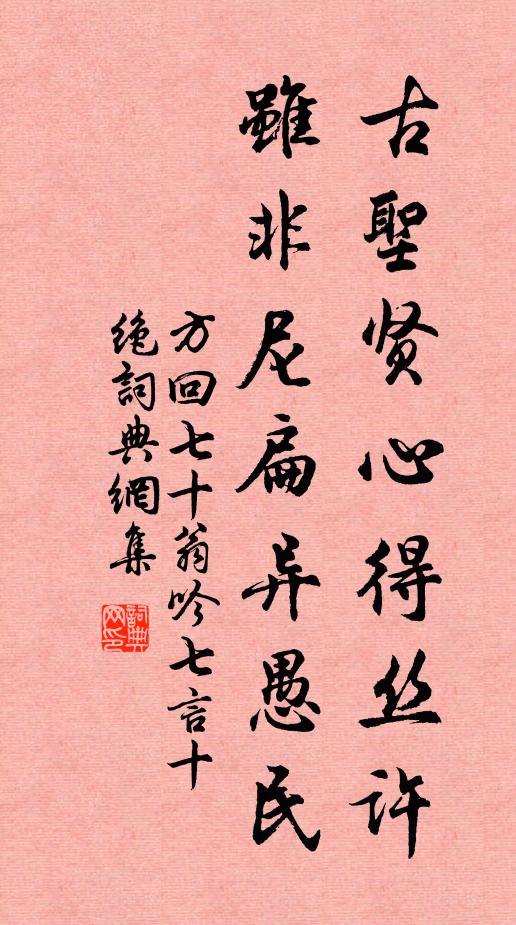 古聖贤心得丝许
雖非尼扁异愚民
方回七十翁吟七言十
绝詞典網集
詞典网印